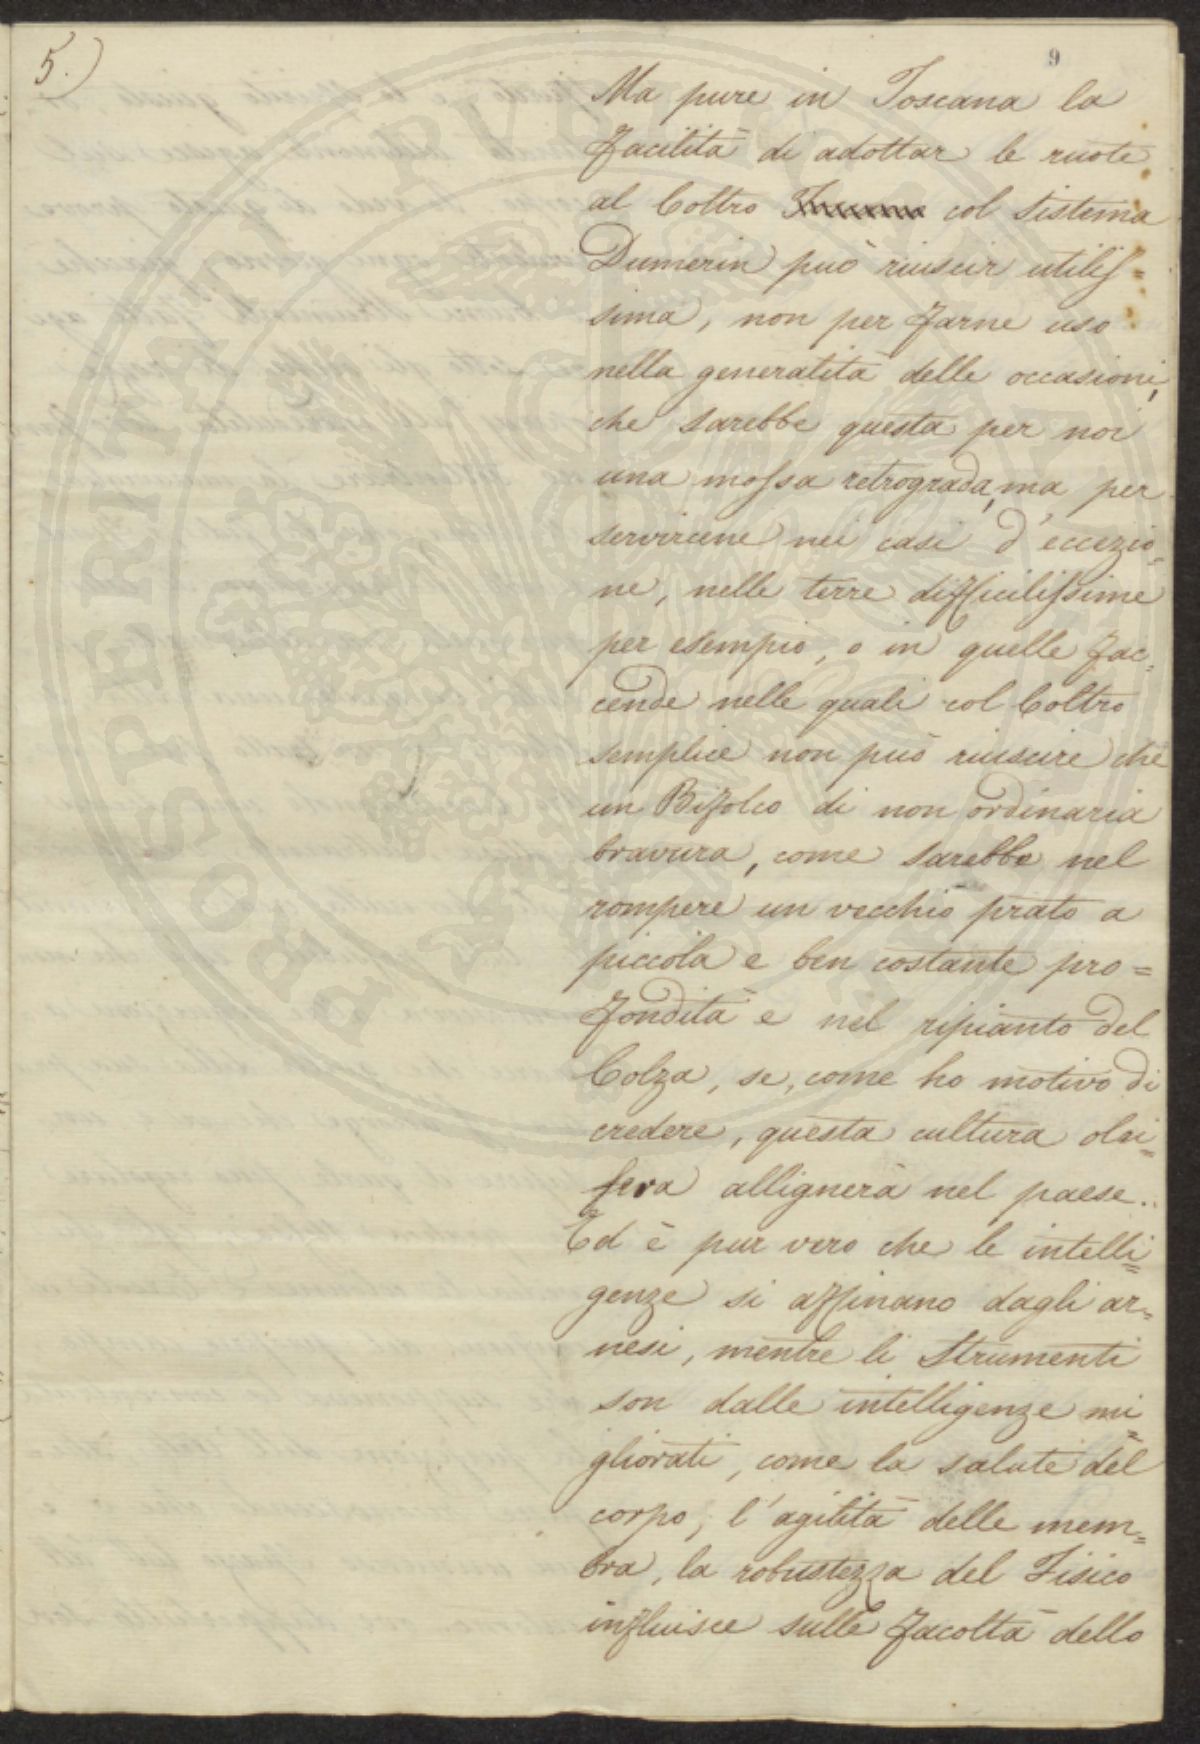 5.)
9
Ma pure in Toscana la
facilità di adottar le ruote
al Coltro col sistema
Dumerin può riuscir utilis=
sima, non per farne uso
nella generalità delle occasioni,
che sarebbe questa per noi
una mossa retrograda, ma per
servircene nei casi d'eccezio=
ne, nelle terre difficilissime
per esempio, o in quelle fac=
cende nelle quali col Coltro
semplice non può riuscire che
un Bifolco di non ordinaria
bravura, come sarebbe nel
rompere un vecchio prato a
piccola e ben costante pro=
fondità e nel ripianto del
Colza, se, come ho motivo di
credere, questa cultura olei=
fera allignerà nel paese.
Ed è pur vero che le intelli=
genze si affinano dagli ar=
nesi, mentre li Strumenti
son dalle intelligenze mi=
gliorati, come la salute del
corpo, l'agilità delle mem=
bra, la robustezza del Fisico
influisce sulle facoltà dello
PROSPERITATI PUBLICAE